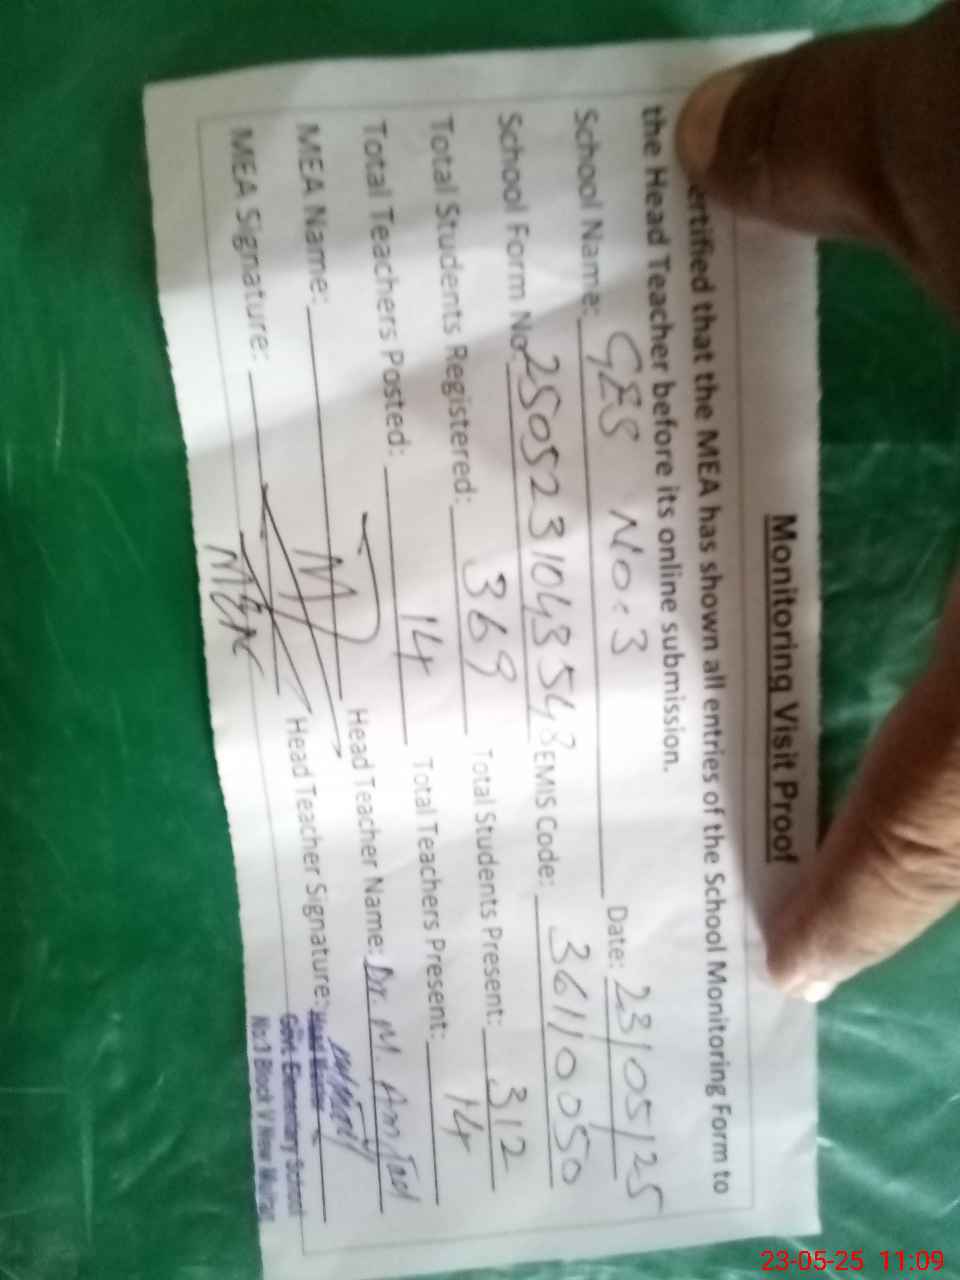 Monitoring Visit Proof
ertified that the MEA has shown all entries of the School Monitoring Form to
the Head Teacher before its online submission.
School Name: GES No. 3 Date: 23/05/25
School Form No: 25052310435543 EMIS Code: 36110050
Total Students Registered: 369 Total Students Present: 312
Total Teachers Posted: 14 Total Teachers Present: 14
MEA Name: Head Teacher Name: Dr. M. Amjad
MEA Signature: Head Teacher Signature:
MEA
Govt. Elementary School
No:3 Block V New
23-05-25 11:09